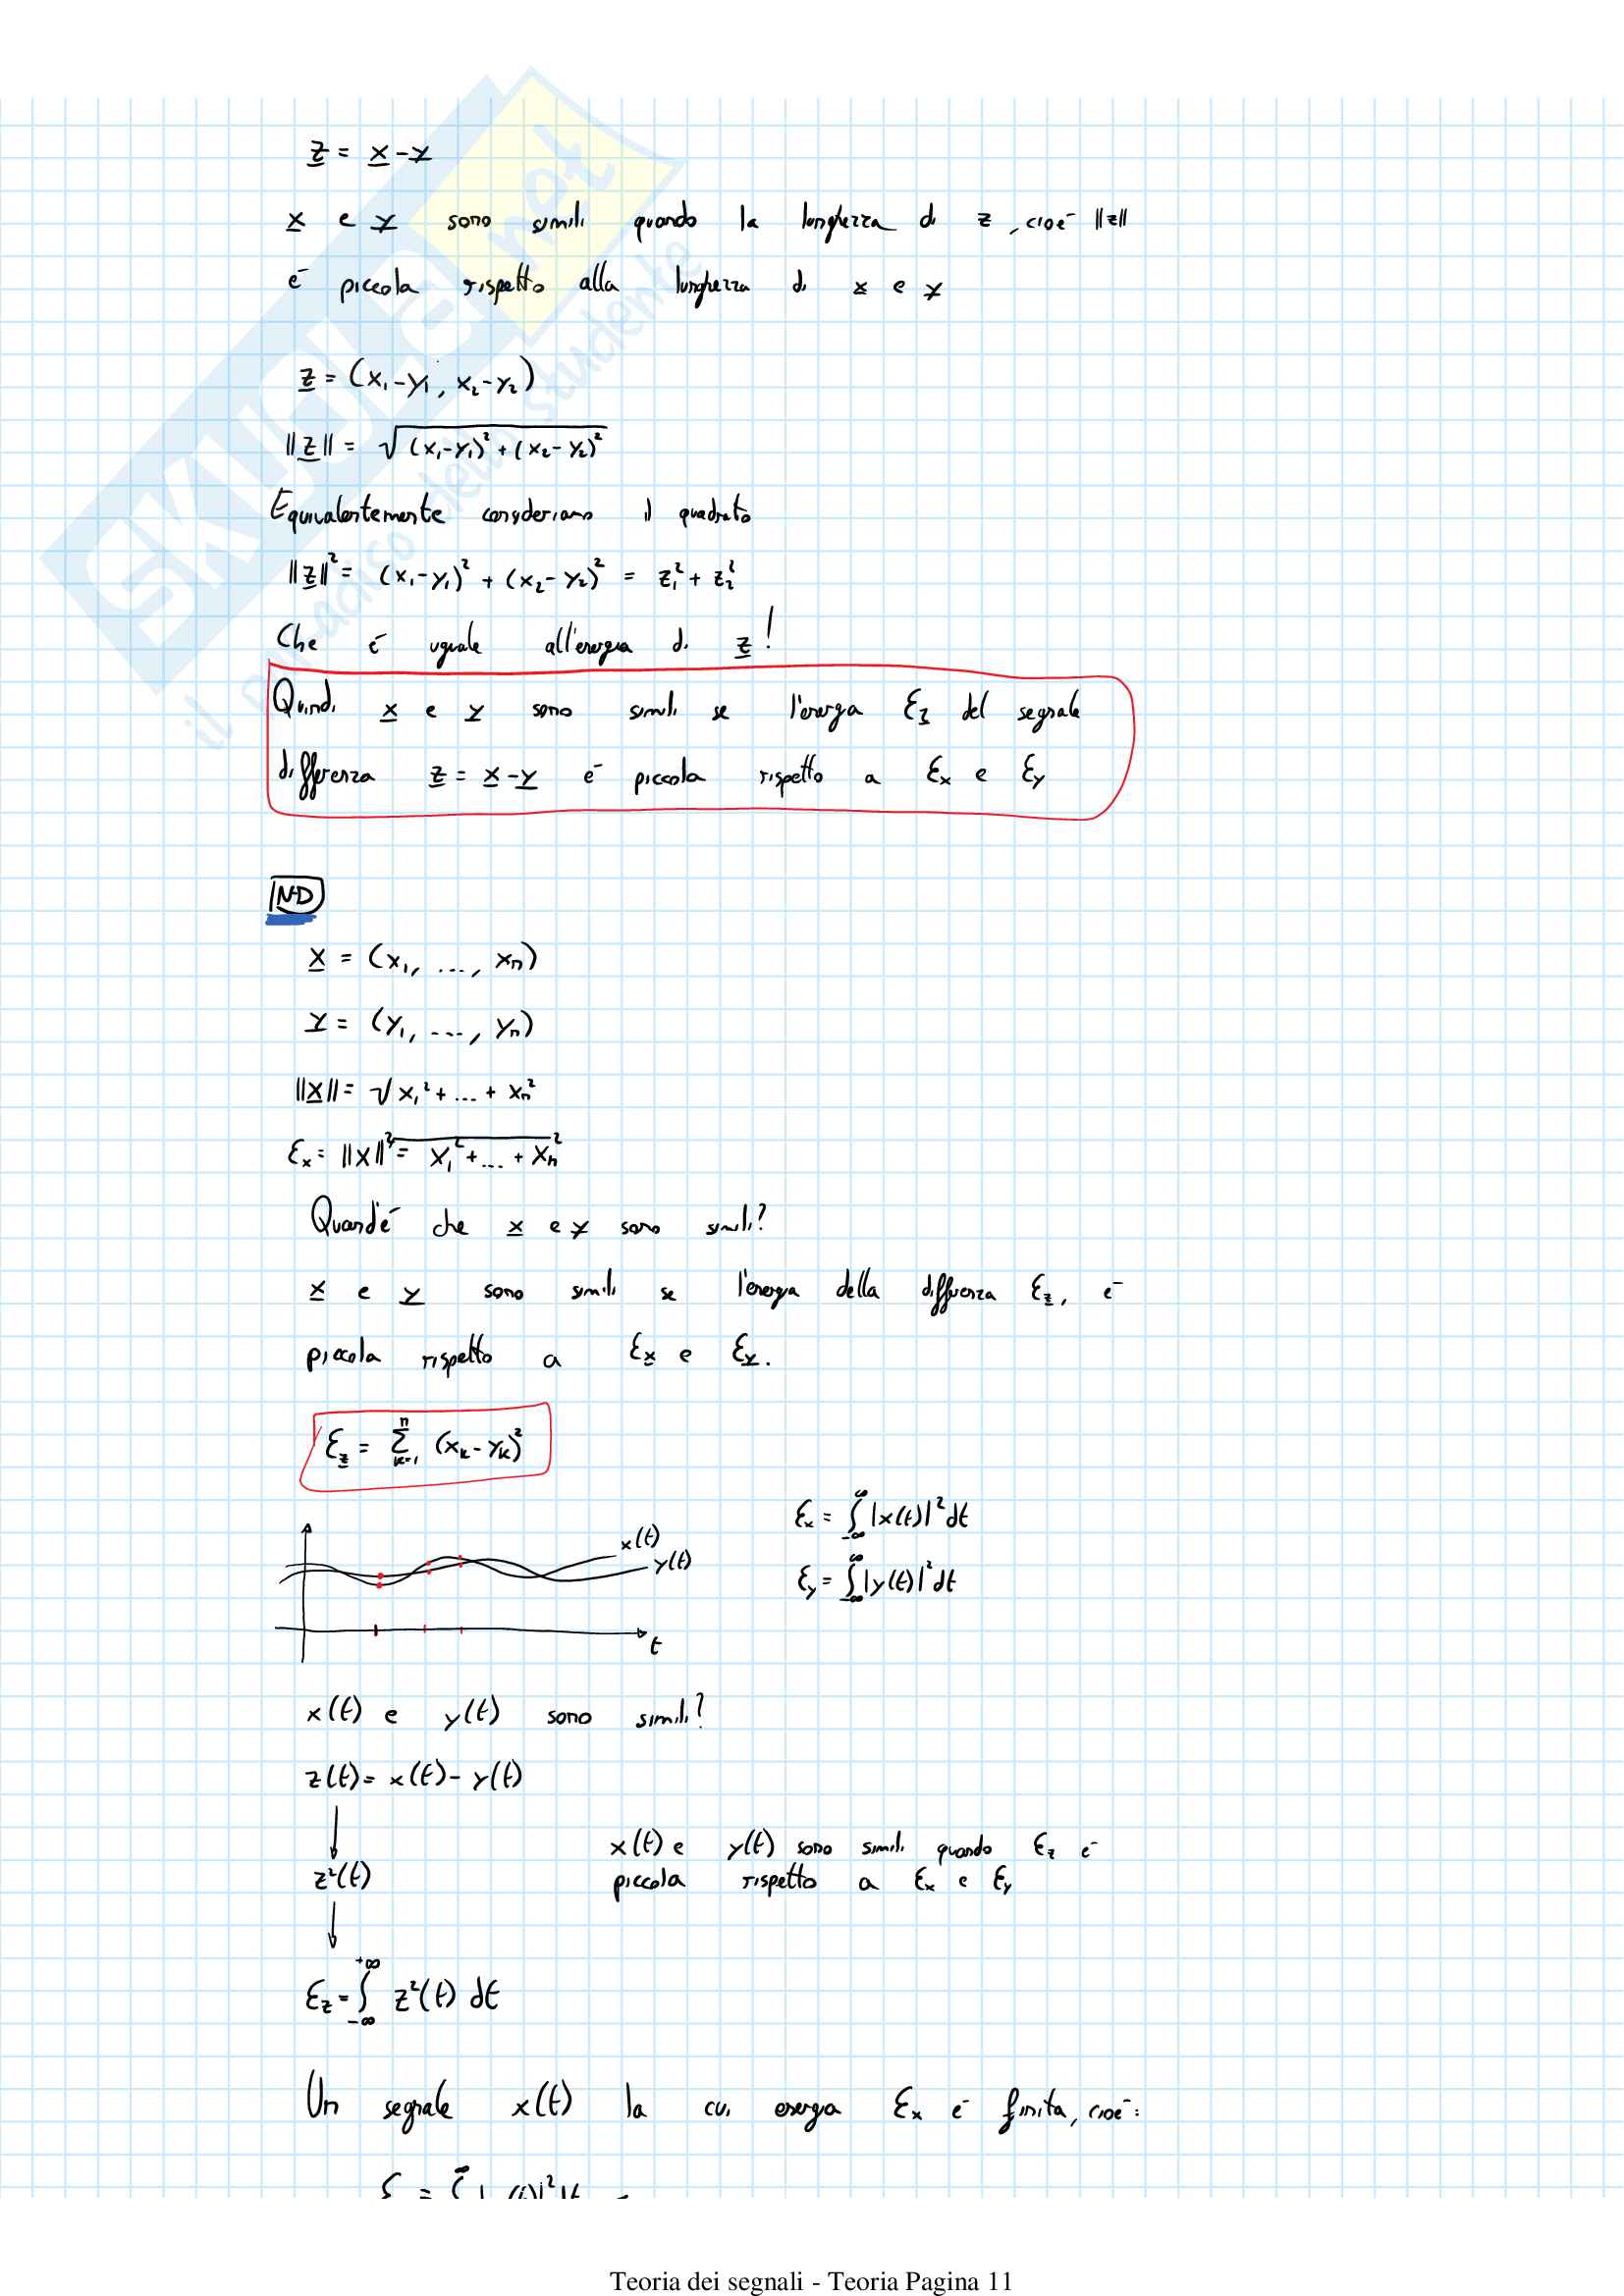 z = x - y
x e y sono simili quando la lunghezza di z, cioè ||z||
è piccola rispetto alla lunghezza di x e y
z = (x₁-y₁, x₂-y₂)
||z|| = √(x₁-y₁)² + (x₂-y₂)²
Equivalentemente consideriamo il quadrato
||z||² = (x₁-y₁)² + (x₂-y₂)² = z₁² + z₂²
Che è uguale all'energia di z!
Quindi x e y sono simili se l'energia Ɛz del segnale
differenza z = x-y è piccola rispetto a Ɛx e Ɛy
N-D
x = (x₁, ..., xₙ)
y = (y₁, ..., yₙ)
||x|| = √x₁² + ... + xₙ²
Ɛx = ||x||² = x₁² + ... + xₙ²
Quand'è che x e y sono simili?
x e y sono simili se l'energia della differenza Ɛz, è
piccola rispetto a Ɛx e Ɛy.
Ɛz = Σₖ₌₁ⁿ (xₖ-yₖ)²
Ɛx = ∫₋∞^∞ |x(t)|² dt
x(t)
y(t)
Ɛy = ∫₋∞^∞ |y(t)|² dt
t
x(t) e y(t) sono simili?
z(t) = x(t) - y(t)
x(t) e y(t) sono simili quando Ɛz è
z²(t)
piccola rispetto a Ɛx e Ɛy
Ɛz = ∫₋∞^+∞ z²(t) dt
Un segnale x(t) la cui energia Ɛx è finita, cioè:
Teoria dei segnali - Teoria Pagina 11
SKUOLA.net